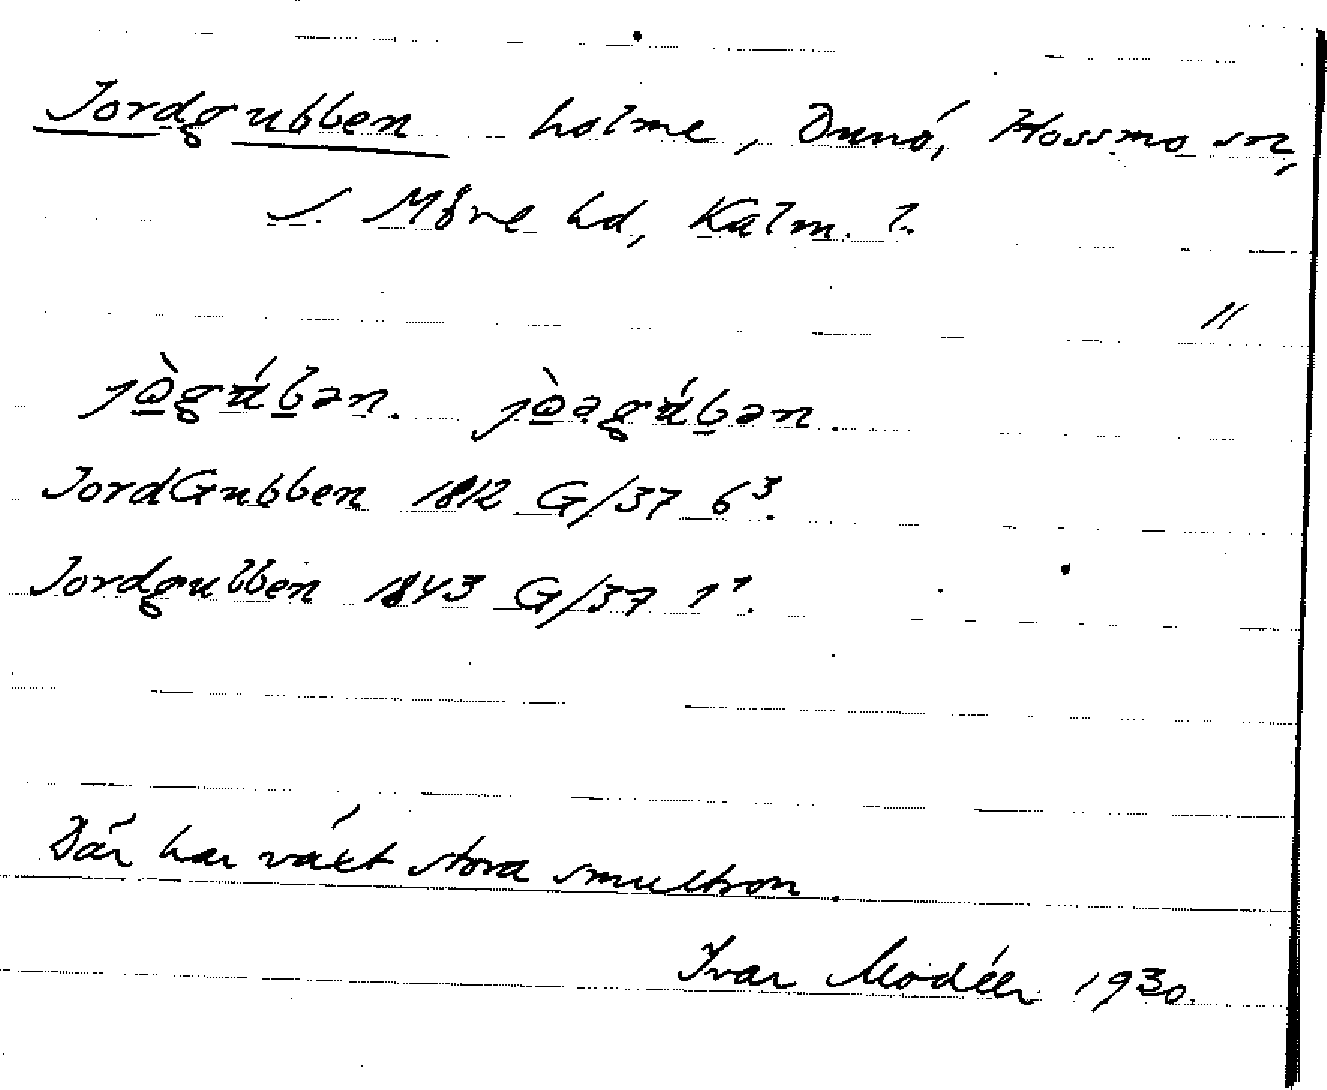 Jordgubben holme, Dunö, Hossmo sn,
S. Möre hd, Kalm. l.
"
jὼgúbən. jὼəgúbən.
JordGubben 1812 G/37 6³.
Jordgubben 1843 G/37 1¹.
Där har växt stora smultron.
Ivar Modéer 1930.